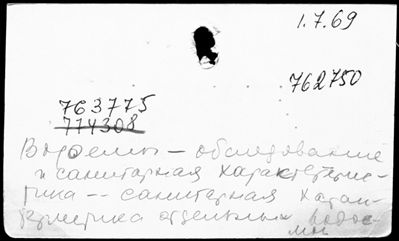 1.7.69
762750
763775
774308
Водоемы – обследование
и санитарная характерис-
тика -- санитарная харак-
теристика отдельных водое-
мы